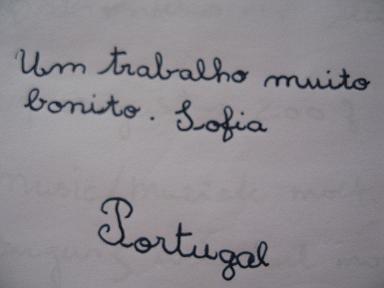 Um trabalho muito
bonito. Sofia
Portugal